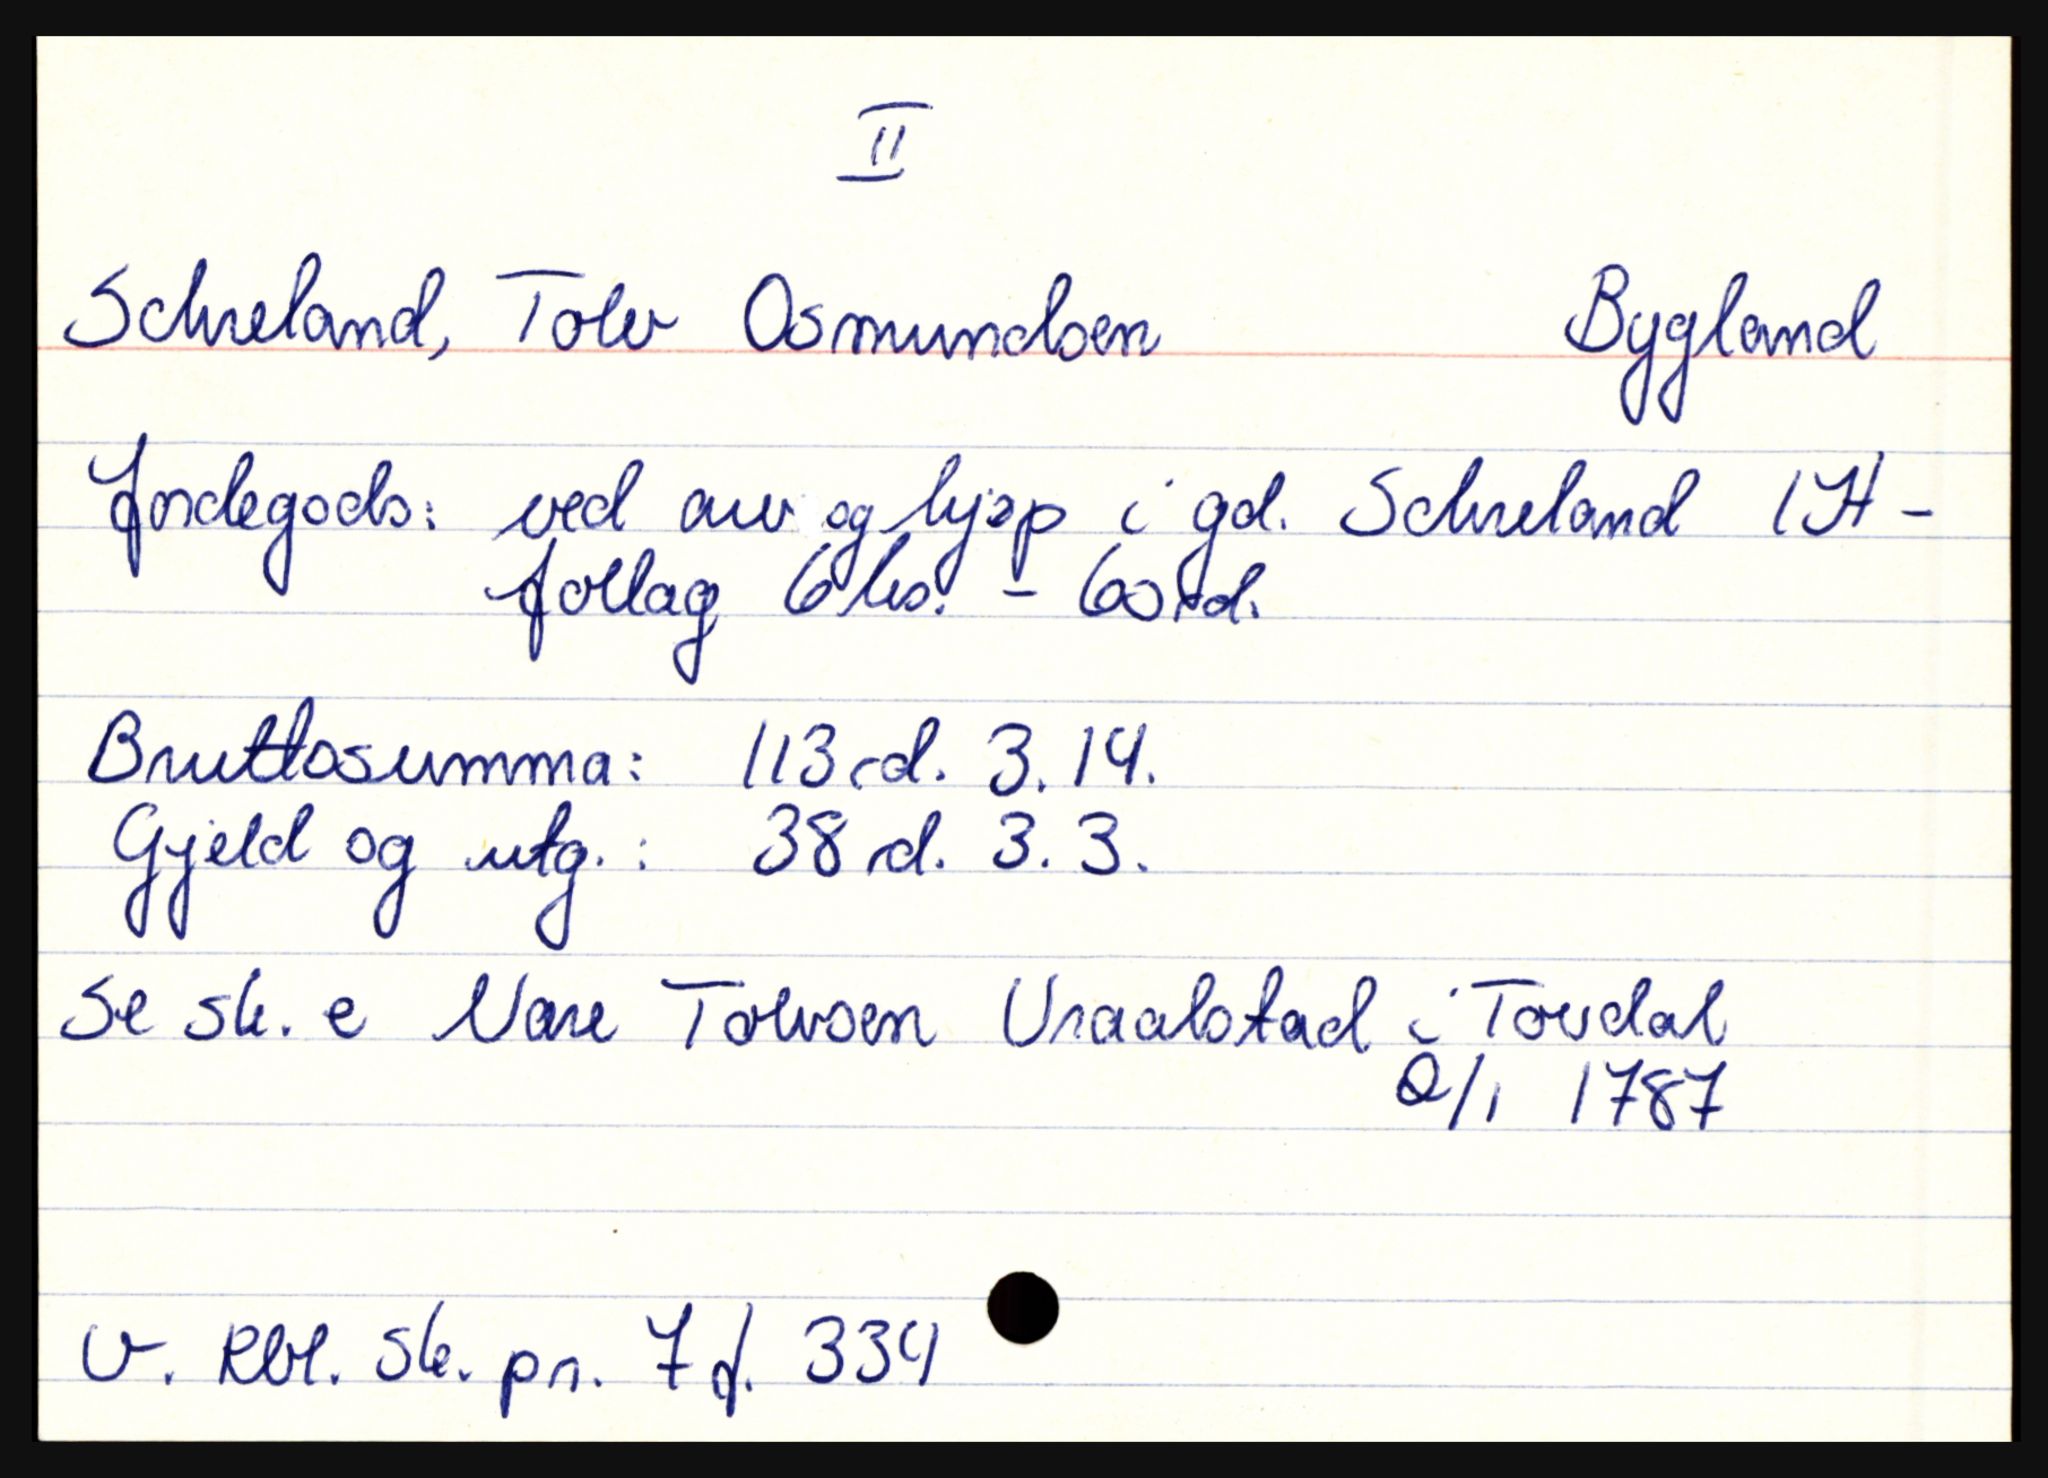 II
Schreland, Tolv Osmundsen Bygland
Jordegods: ved arv og kjøp i gd. Schreland 1 H -
forlag 6 ks. - 60 rd.
Bruttosumma: 113 rd. 3. 14.
Gjeld og utg. : 38 rd. 3. 3.
Se sk. e Nare Tolvsen Uraalstad i Tovdal
2/1 1787
V. Rbl. Sk. pr. 7 f. 334